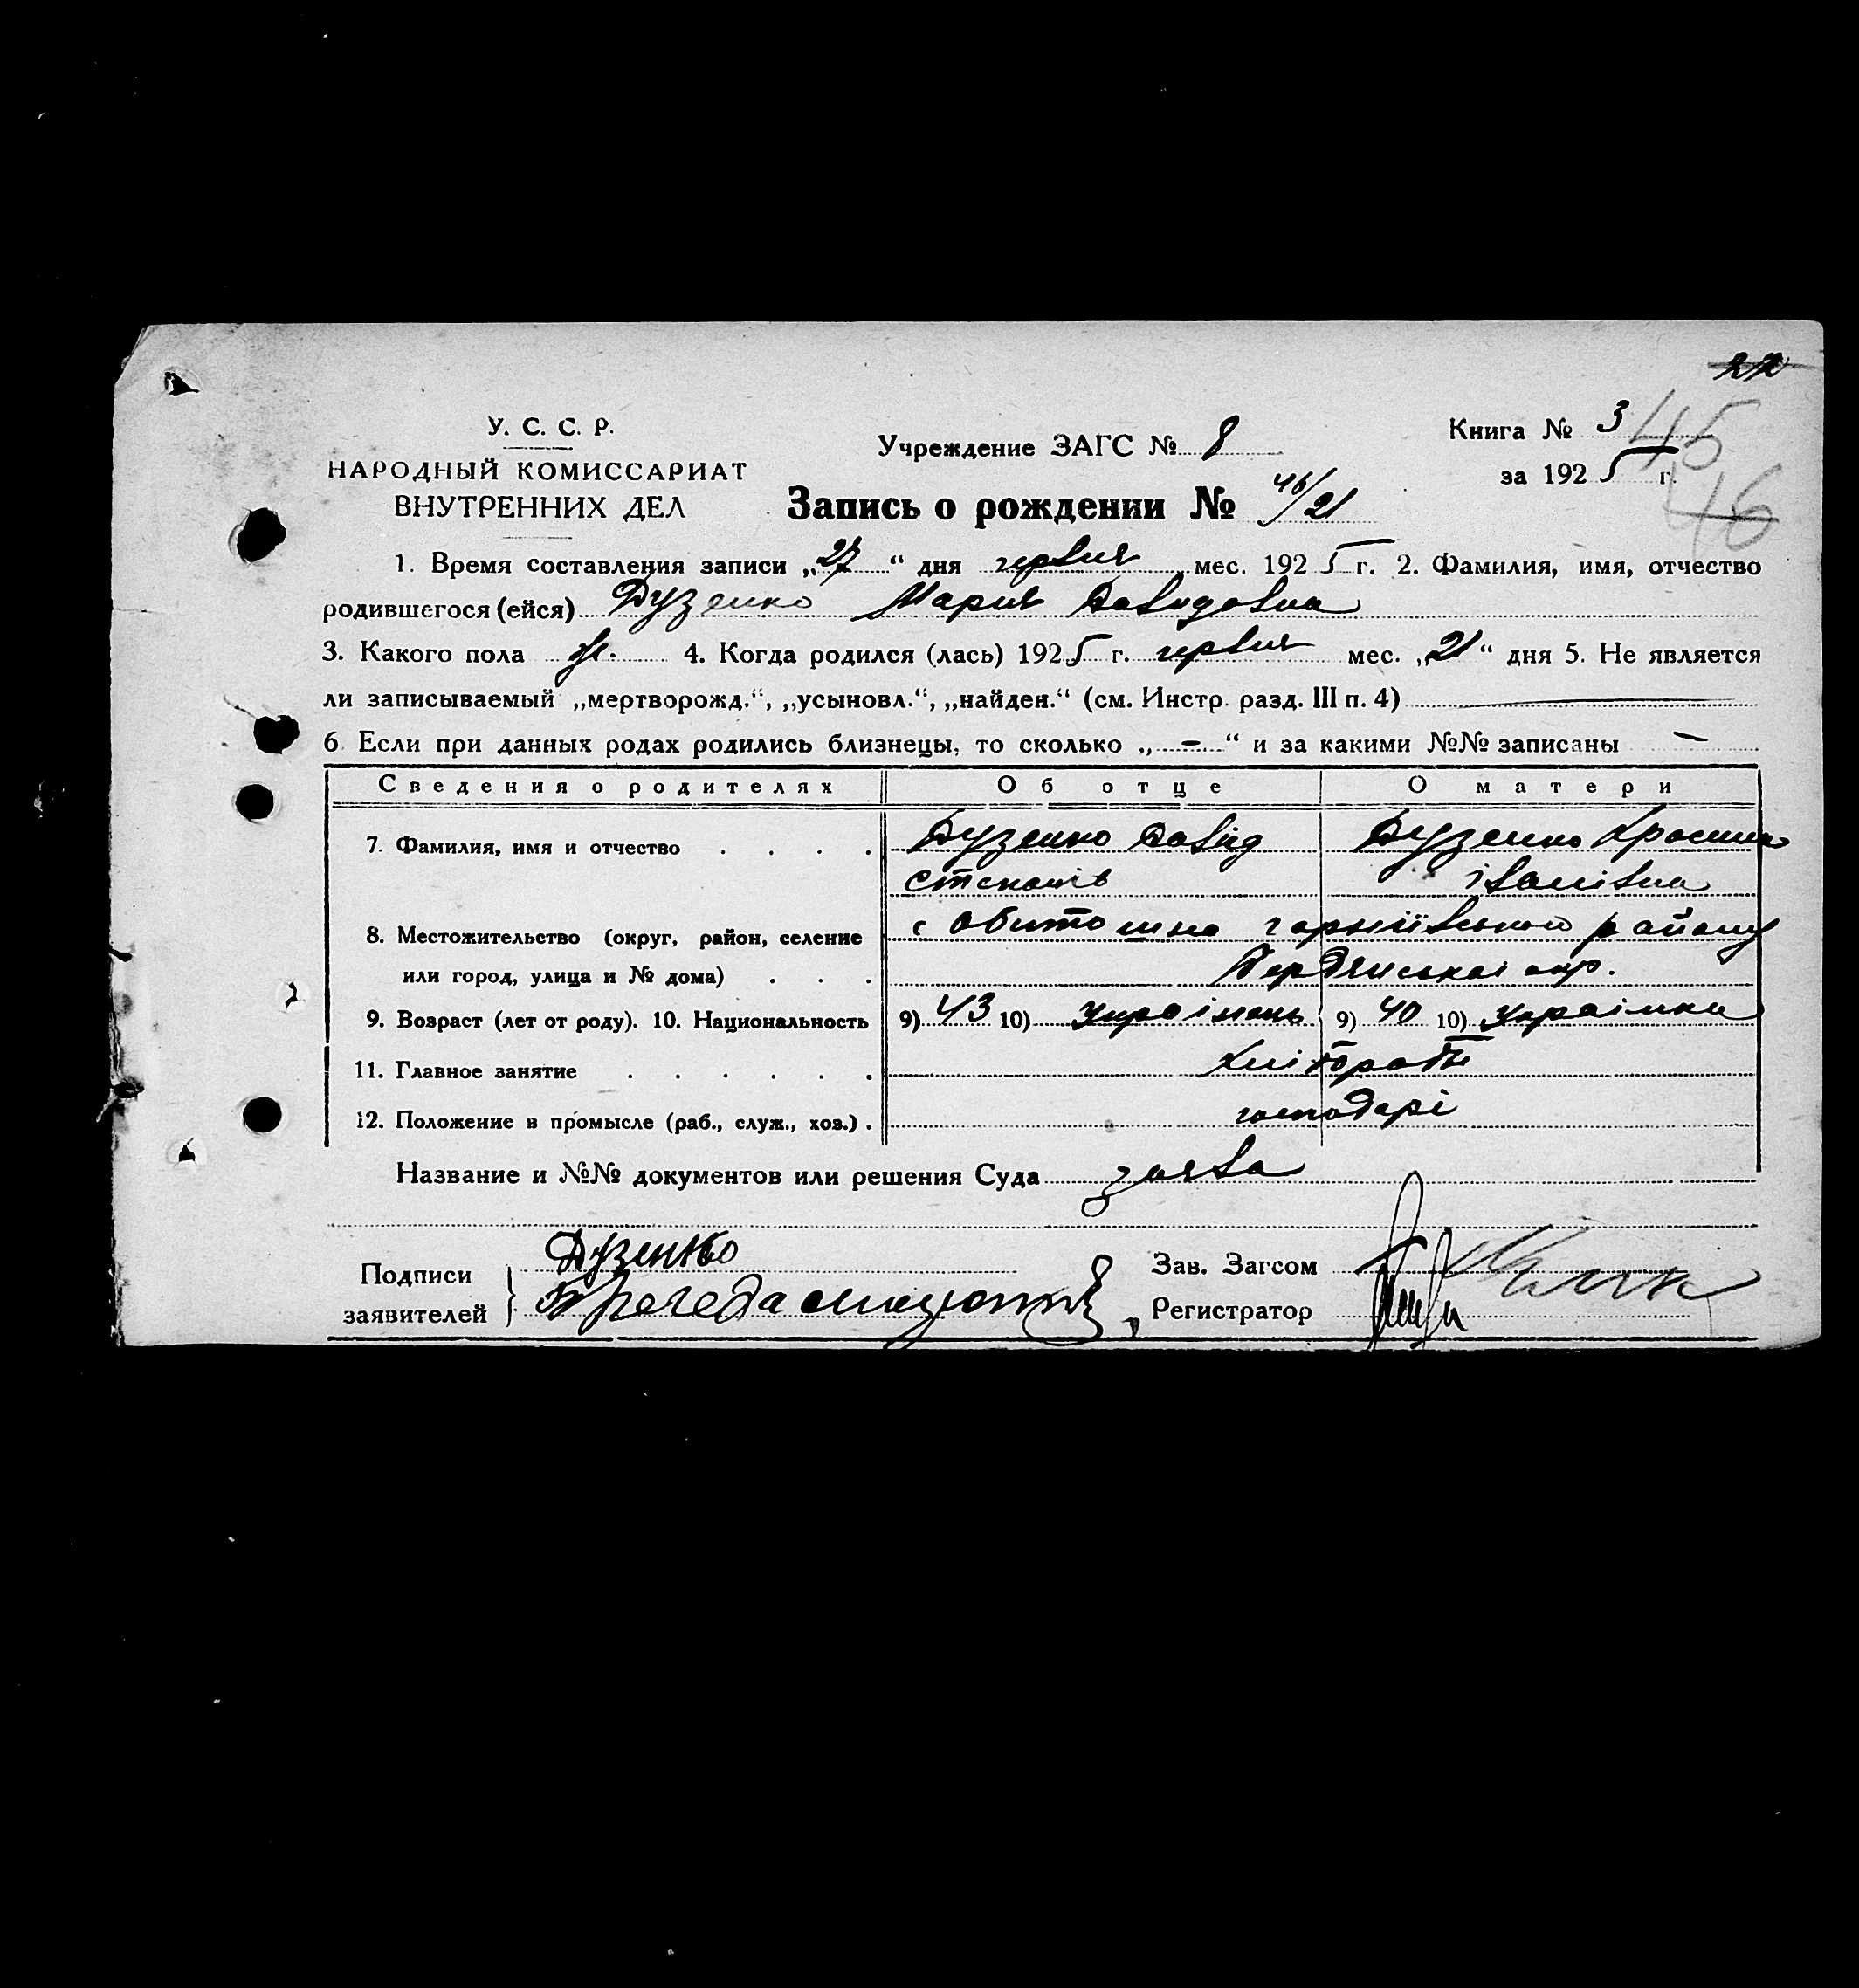 22
У. С. С. Р.
НАРОДНЫЙ КОМИССАРИАТ
ВНУТРЕННИХ ДЕЛ
Учреждение ЗАГС № 8
Книга № 3 45
за 1925 г. 46
Запись о рождении № 46/21
1. Время составления записи „27“ дня червня мес. 1925 г. 2. Фамилия, имя, отчество
родившегося (ейся) Дузенко Мария Давидовна
3. Какого пола ж. 4. Когда родился (лась) 1925 г. червня мес. „21“ дня 5. Не является
ли записываемый „мертворожд.“, „усыновл.“, „найден.“ (см. Инстр. разд. III п. 4)
6 Если при данных родах родились близнецы, то сколько „—“ и за какими №№ записаны —
Сведения о родителях Об отце О матери
7. Фамилия, имя и отчество Дузенко Давид Дузенко
Степанів іванівна
8. Местожительство (округ, район, селение с Обиточна района
или город, улица и № дома) Бердянської окр.
9. Возраст (лет от роду). 10. Национальность 9) 43 10) Українець 9) 40 10) Українка
11. Главное занятие хлібороби
12. Положение в промысле (раб., служ., хоз.) господарі
Название и №№ документов или решения Суда заява
Подписи Дузенко
заявителей
Зав. Загсом
Регистратор